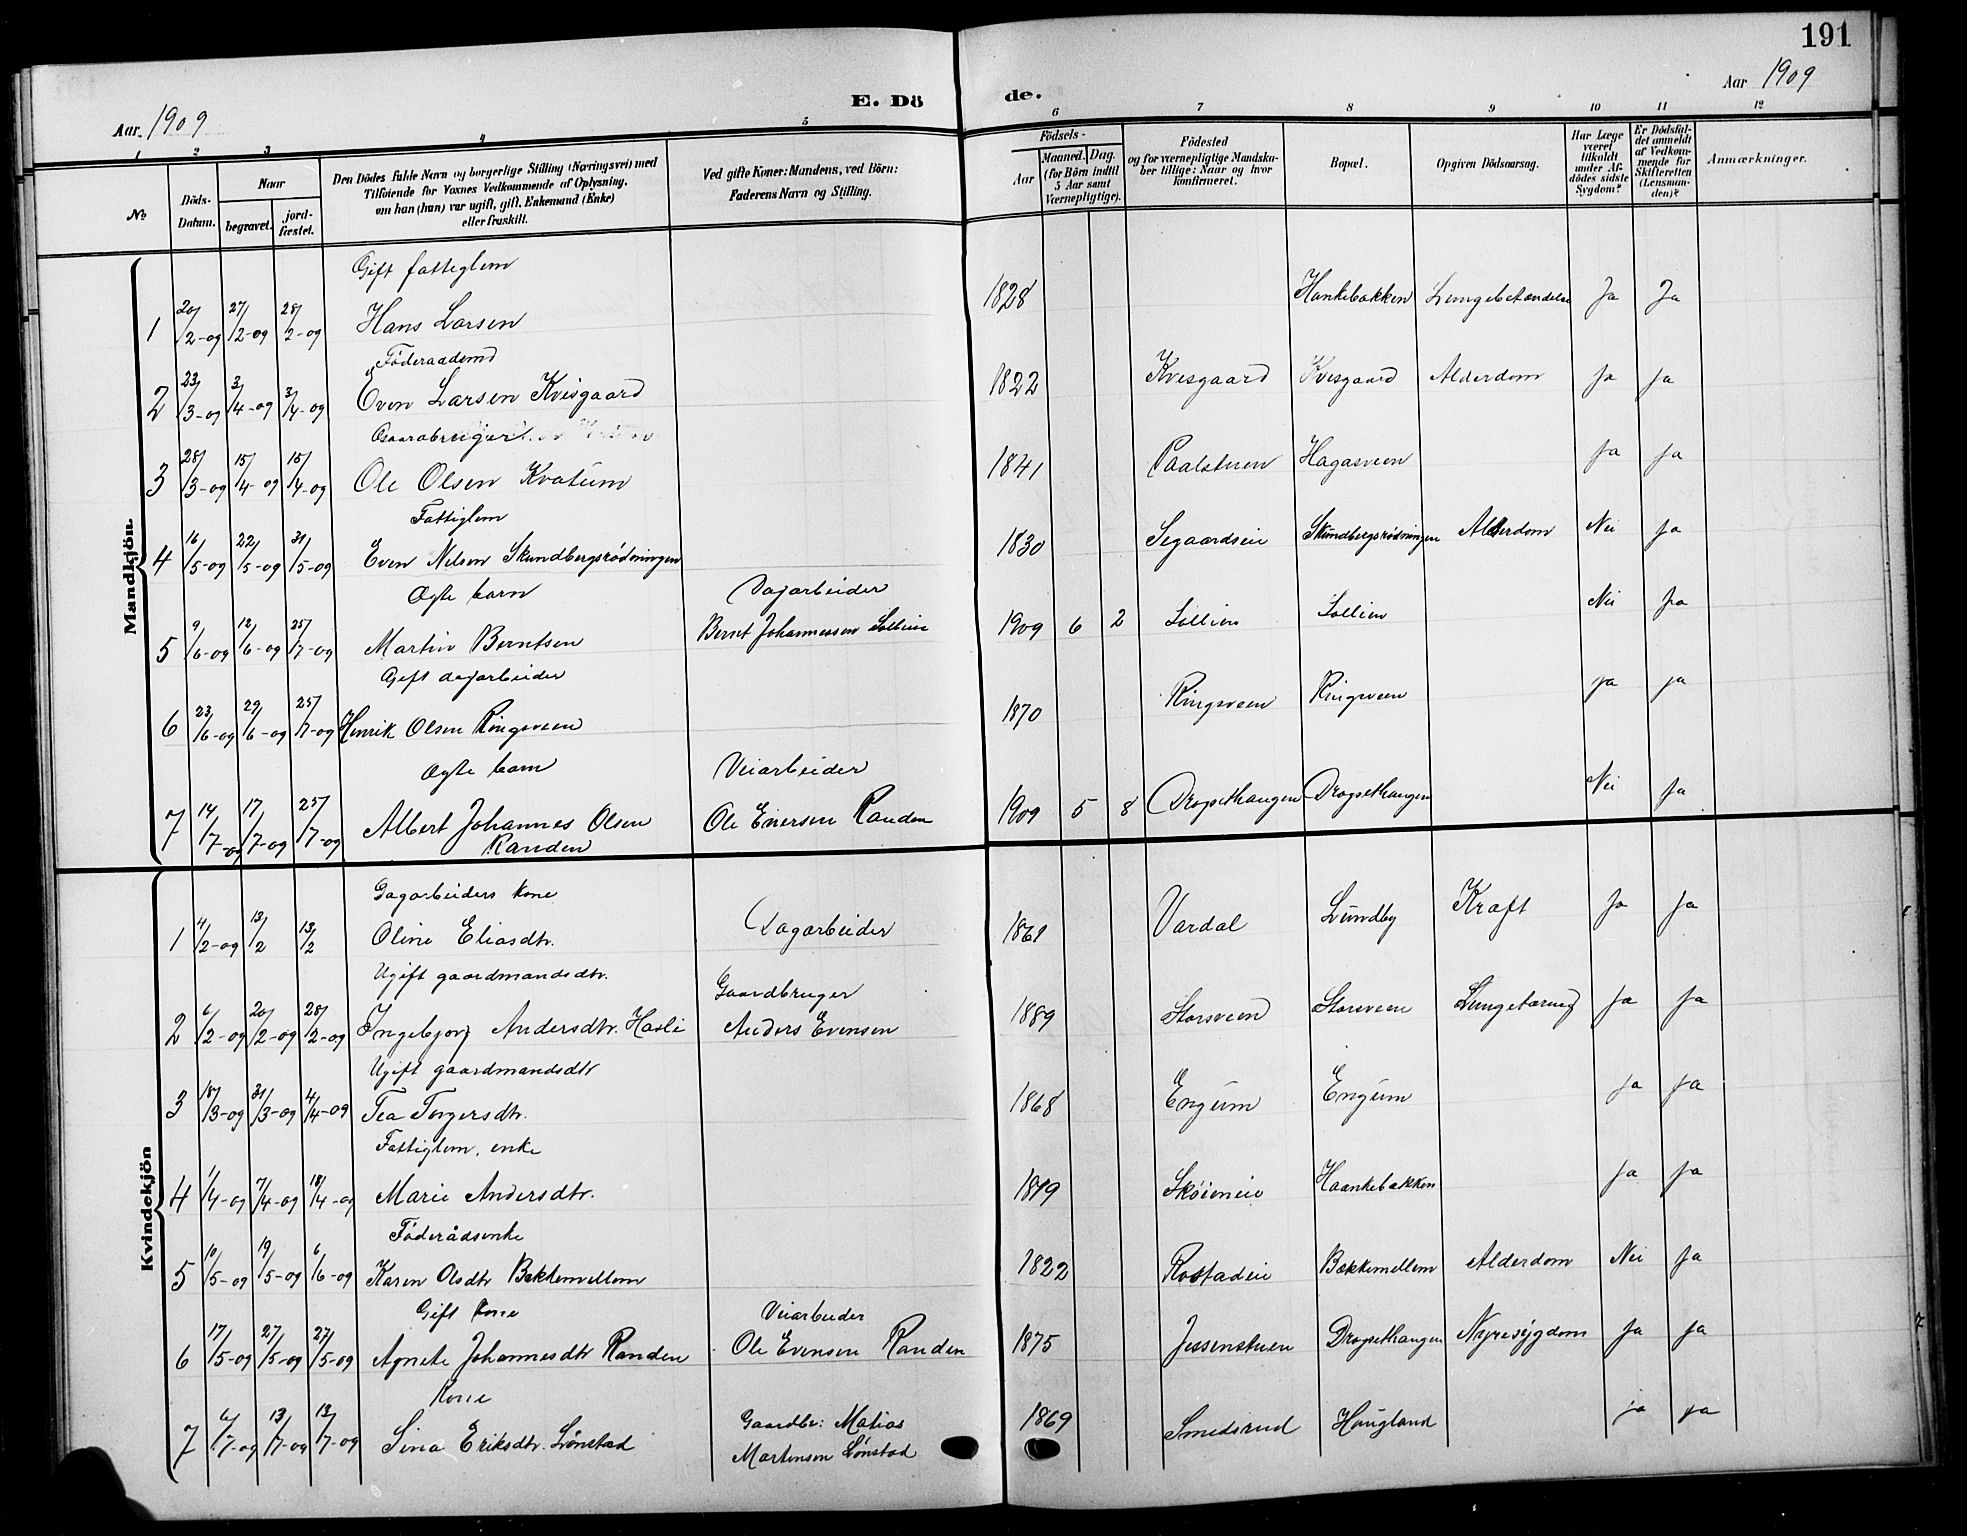 191
Aar. 1909
E. Dö
de.
Aar 1909
1 2 3 4 5
6 7 8 9 10 11 12
No
Döds-
Datum.
Naar
begravet.
jord-
fæstet.
Den Dödes fulde Navn og borgerlige Stilling (Næringsvei) med
Tilföiende for Voxnes Vedkommende af Oplysning,
om han (hun) var ugift, gift, Enkemand (Enke)
eller fraskilt.
Ved gifte Koner: Mandens, ved Börn:
Faderens Navn og Stilling.
Födsels-
Aar
Maaned. Dag.
(for Börn indtil
5 Aar samt
Værnepligtige).
Födested
og for værnepligtige Mandska-
ber tillige: Naar og hvor
konfirmeret.
Bopæl.
Opgiven Dödsaarsag.
Har Læge
været
tilkaldt
under Af-
dödes sidste
Sygdom?
Er Dödsfal-
det anmeldt
af Vedkom-
mende for
Skifteretten
(Lensman-
den)?
Anmærkninger.
Mandkjön.
Gift fattiglem
1 20/2-09 27/2-09 28/2-09 Hans Larsen 1828 Hankebakken Lungebetændelse Ja Ja
Föderaadsmd
2 23/3-09 3/4-09 3/4-09 Even Larsen Kvisgaard 1822 Kvisgaard Kvisgaard Alderdom Ja ja
3 28/3-09 15/4-09 15/4-09 Ole Olsen Kvatum 1841 Paalstuen Hagasveen ja ja
Fattiglem
4 16/5-09 22/5-09 31/5-09 Even Nilsen Skundbergsrødningen 1830 Segaardseie Skundbergsrødningen Alderdom Nei ja
Ægte barn Dagarbeider
5 9/6-09 12/6-09 25/7-09 Martin Berntsen Bernt Johannessen Sollien 1909 6 2 Sollien Sollien Nei ja
Gift dagarbeider
6 23/6-09 29/6-09 25/7-09 Henrik Olsen Ringsveen 1870 Ringsveen Ringsveen ja ja
Ægte barn Veiarbeider
7 14/7-09 17/7-09 25/7-09 Albert Johannes Olsen Ole Enersen Randen 1909 5 8 Dropsethaugen Dropsethaugen Nei ja
Randen
Kvindekjön
Dagarbeiders kone
1 4/2-09 13/2 13/2 Oline Eliasdtr. Dagarbeider 1861 Vardal Lundby Kræft Ja ja
Ugift gaardmandsdtr. Gaardbruger
2 6/2-09 20/2-09 28/2-09 Ingebjorg Andersdtr. Hasli Anders Evensen 1889 Storsveen Storsveen Lungetæring ja ja
Ugift gaardmandsdtr
3 18/3-09 31/3-09 4/4-09 Tea Torgersdtr. 1868 Engum Engum ja ja
Fattiglem, enke
4 1/4-09 7/4-09 18/4-09 Marie Andersdtr. Skøieneie Haankebakken ja ja
Föderådsenke
5 10/5-09 19/5-09 6/6-09 Karen Olsdtr Bækkemellem 1822 Rostadeie Bækkemellem Alderdom Nei ja
Gift kone Veiarbeider
6 17/5-09 27/5-09 27/5-09 Agnete Johannesdtr Randen Ole Evensen Randen 1875 Jessenstuen Dropsethaugen Nyresygdom ja ja
Kone
7 6/7-09 13/7-09 13/7-09 Sina Eriksdtr. Lønstad Gaardbr: Matias 1869 Smedsrud Haugland ja ja
Martensen Lønstad